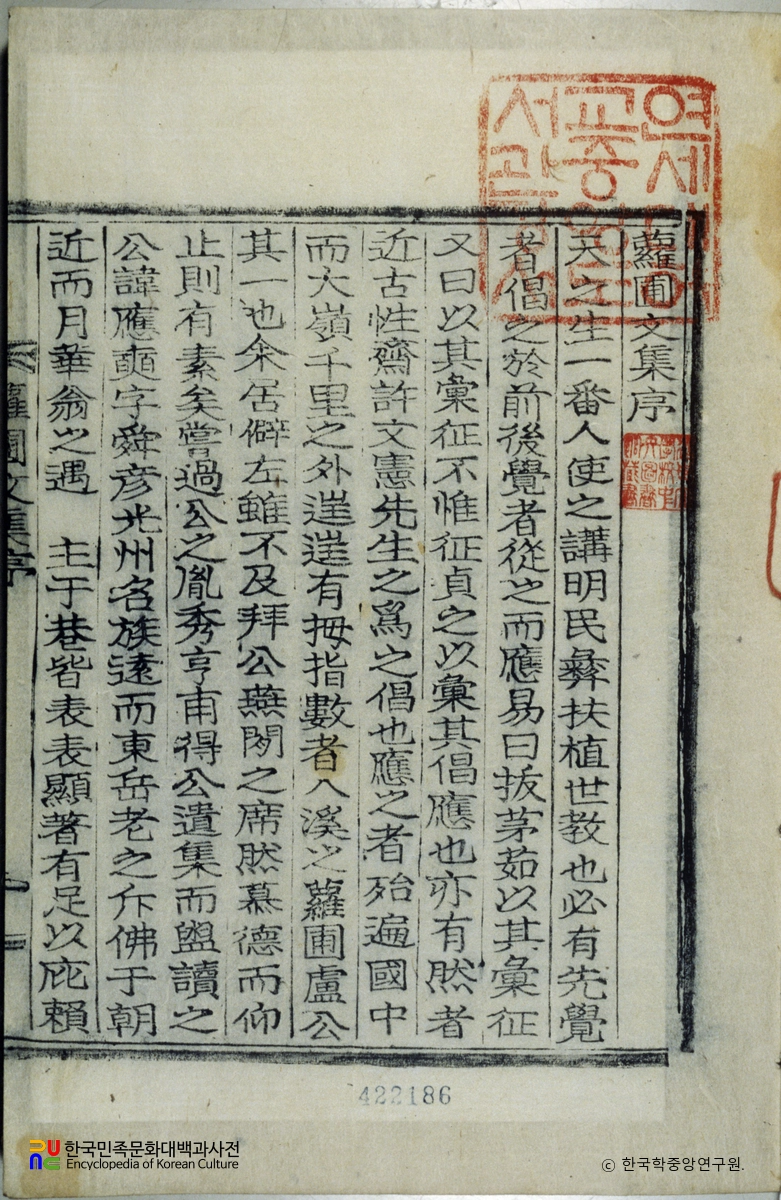 蘿圃文集序
天之生一番人使之講明民彝扶植世教也必有先覺
者倡之於前後覺者從之而應易曰拔茅茹以其彙征
又曰以其彙征不惟征貞之以彙其倡應也亦有然者
近古性齋許文憲先生之爲之倡也應之者殆遍國中
而大嶺千里之外逞逞有拇指數者八溪之蘿圃盧公
其一也余居僻左雖不及拜公燕閒之席然慕德而仰
止則有素矣嘗過公之胤秀亨甫得公遺集而盥讀之
公諱應奭字舜彦光州名族遠而東岳老之斥佛于朝
近而月華翁之遇 主于巷皆表表顯著有足以庇賴
蘿圃文集序
一
422186
한국민족문화대백과사전
Encyclopedia of Korean Culture
© 한국학중앙연구원.